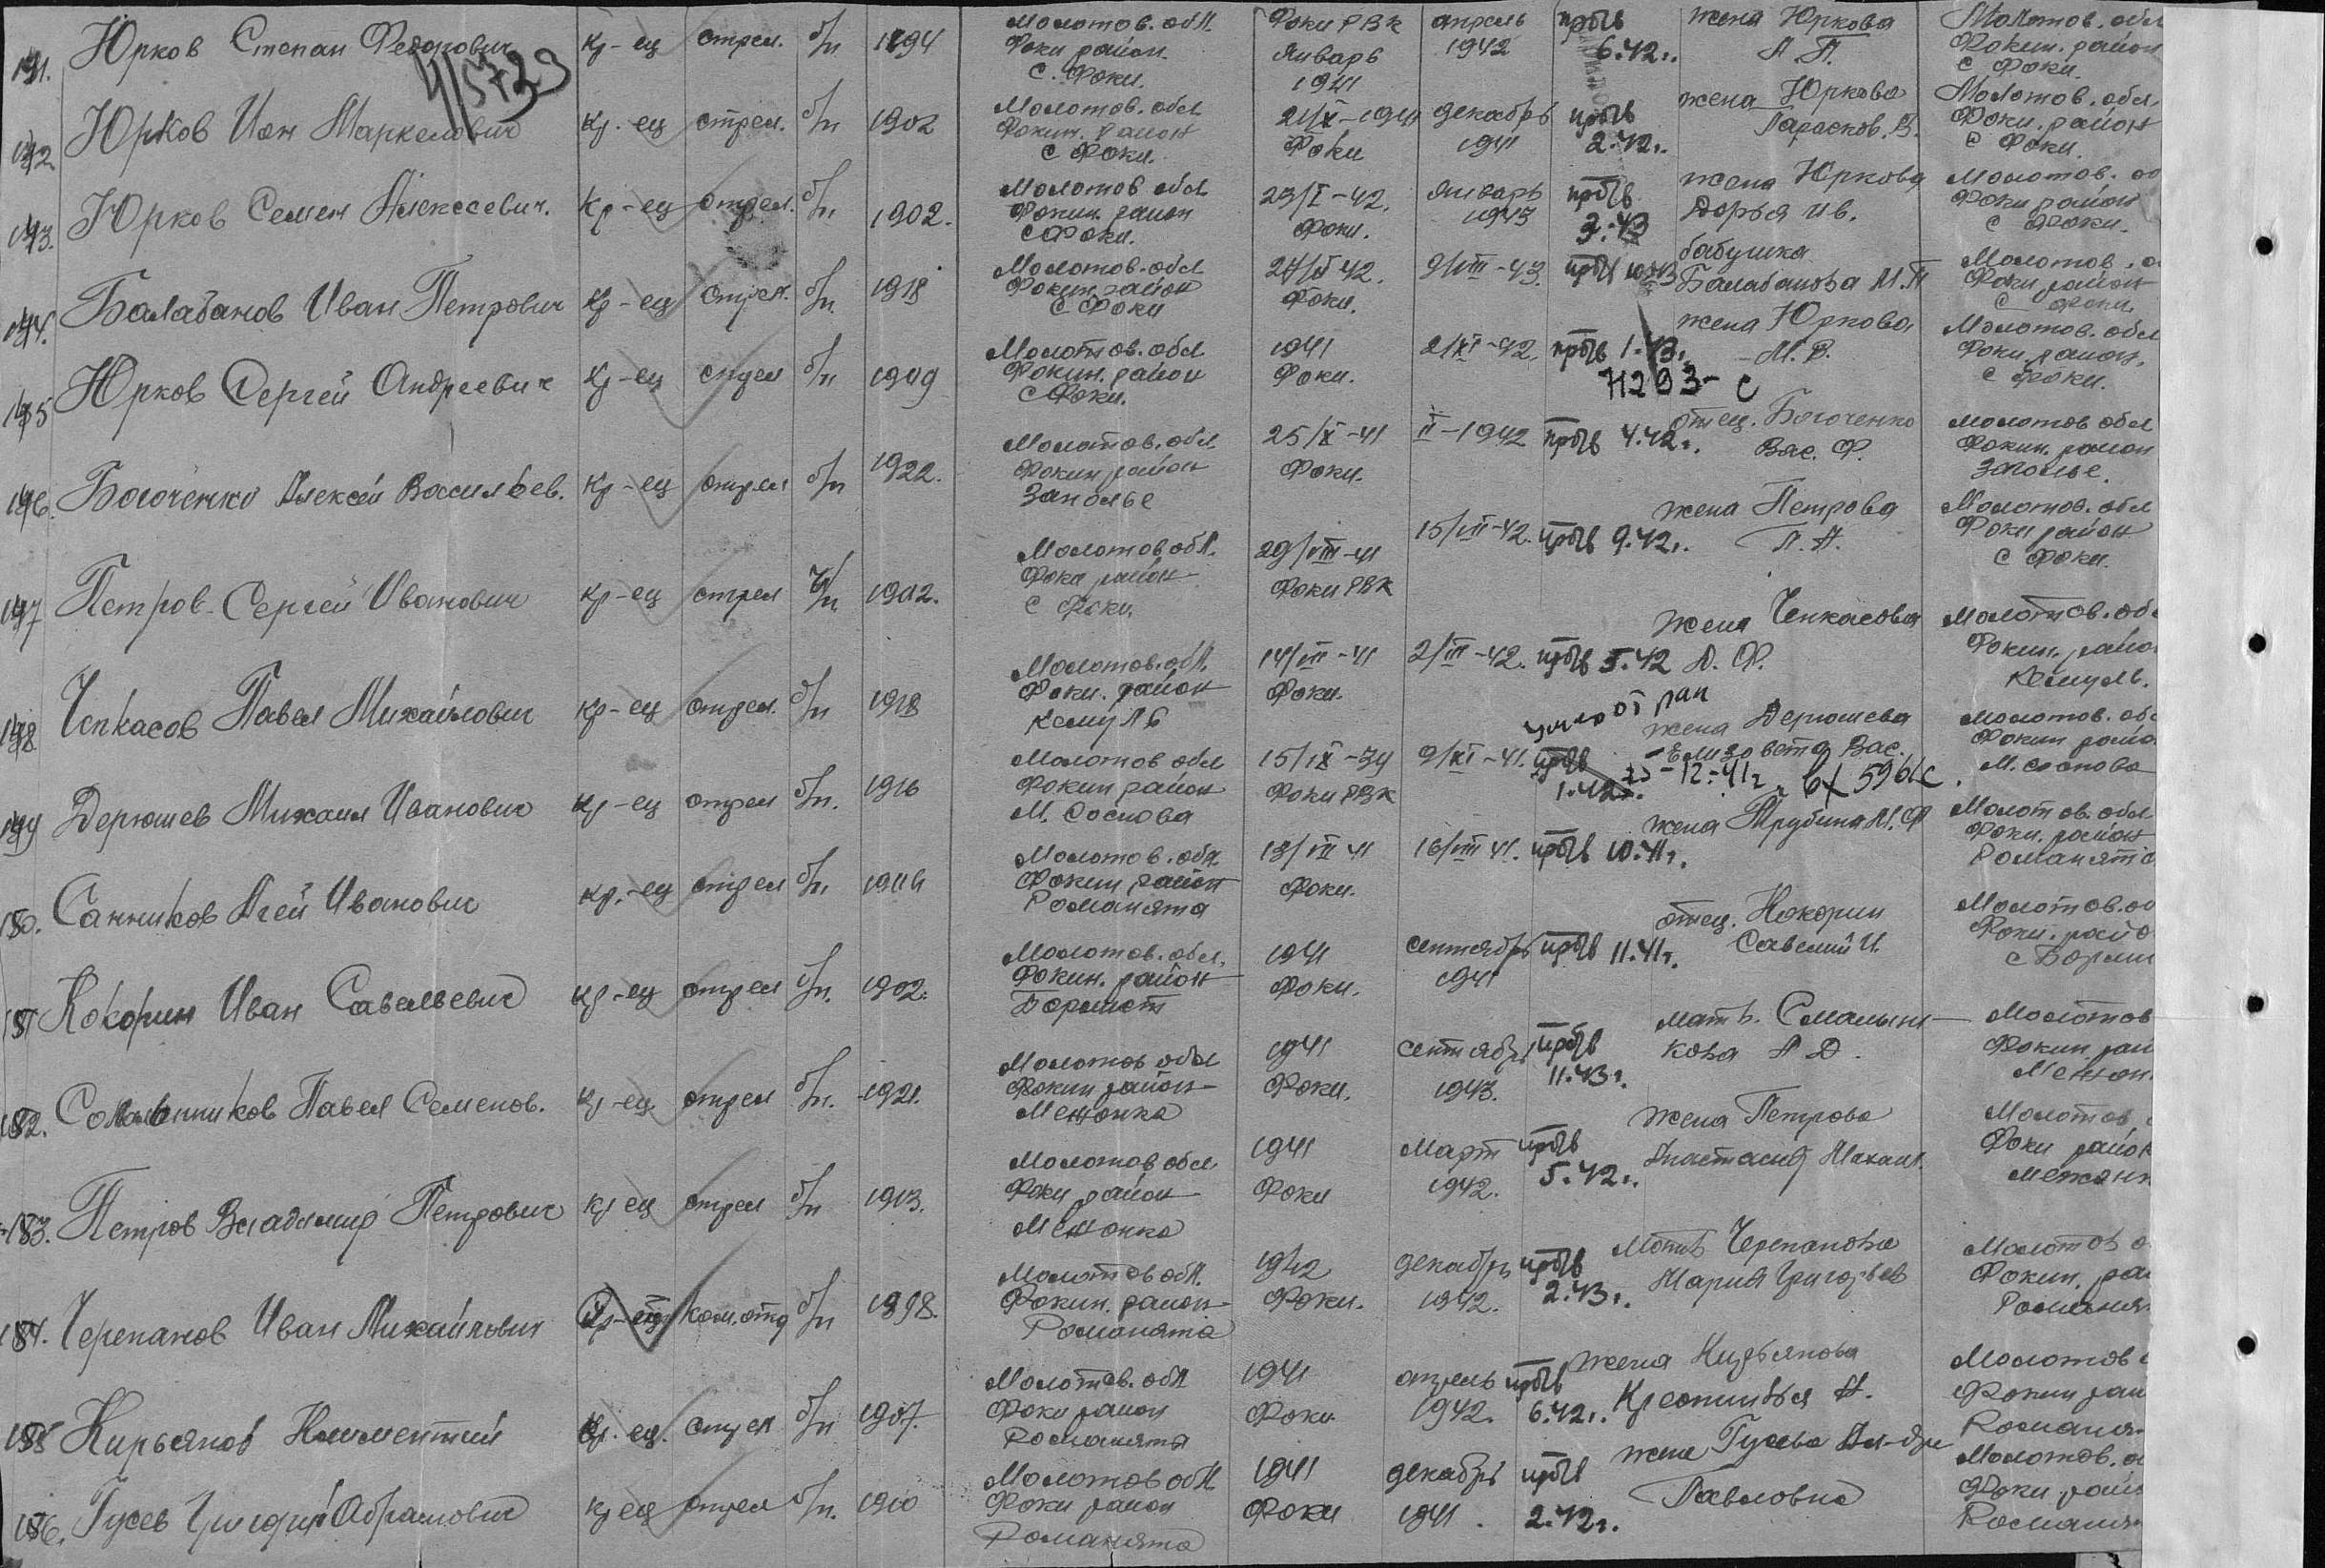 Юрков Степан Федорович кр-ец стрел. б/п 1894 Молотов. обл. Фоки район. с. Фоки. Фоки РВК январь 1941 апрель 1942 проп 6.42г. жена Юркова А. П. Молотов. обл Фокин. район с Фоки.
4/5723
Юрков Иан Маркелович кр. ец стрел. б/п 1902 Молотов. обл Фокин. район с Фоки. Фоки декабрь 1941 2.42г. жена Юркова Парасков. В. Молотов. обл. Фоки. район с Фоки.
Юрков Семен Алексеевич. кр-ец стрел. б/п 1902. Молотов обл Фокин. район с Фоки. 23/I-42. Фоки. январь 1943 3.43 жена Юркова Дарья Ив. Молотов. Фоки район с Фоки.
Балабанов Иван Петрович кр-ец стрел. б/п. 1918 Молотов. обл Фокин. район с Фоки Фоки. 9/VIII-43. бабушка Балабанова М. П Молотов. Фоки район с Фоки.
Юрков Сергей Андреевич кр-ец стрел б/п 1909 Молотов. обл. Фокин. район с Фоки. 1941 Фоки. 2/XI-42. 1.43г. жена Юркова Молотов. обл Фоки. район. с Фоки.
71293-с
Богоченко Алексей Васильев. кр-ец стрел б/п 1922. Молотов. обл. Фокин район Заполье 25/X-41 Фоки. II-1942 4.42г. отец. Богоченко Вас. Ф. Молотов обл Фокин. район Заполье.
Петров Сергей Иванович кр-ец стрел 1902. Молотов обл. Фоки район с Фоки. 29/VIII-41 Фоки РВК 15/VII-42. 9.42г. жена Петрова Молотов. обл Фоки район с Фоки.
Чепкасов Павел Михайлович кр-ец стрел. б/п 1918 Молотов. обл. Фоки. район Кемуль 14/VII-41 Фоки. 2/III-42. 5.42 жена Чепкасова Д. Ф. Молотов. обл Фокин. район Кемуль.
умер от ран
Дерюшев Михаил Иванович кр-ец стрел б/п. 1916 Молотов обл Фокин район М. Соснова 15/IX-39 Фоки РВК 9/XI-41. 1.42г. жена Дерюшева Елизовета Вас. Молотов. обл Фокин райо М. Соснова
23-12-41г. вх 5961с
150. Санников Агей Иванович кр.-ец стрел б/п Молотов. обл. Фокин район Романята 13/VII 41 Фоки. 16/VIII 41. 10.41г. жена Трубина М. Ф Молотов. обл Фоки. район Романята
151 Кокорин Иван Савельевич кр-ец стрел б/п. 1902. Молотов. обл. Фокин. район 1941 Фоки. сентябрь 1941 11.41г. отец. Кокорин Савелий И. Молотов. Фоки. райо
152. Павел Семенов. кр-ец стрел б/п. 1921. Молотов обл Фокин район Межонка 1941 Фоки. сентябрь 1943. 11.43г. мать. кова А Д. Молотов Фокин рай Межон
153. Петров Владимир Петрович кр ец стрел б/п 1913. Молотов обл. Фоки район Межонка 1941 Фоки март 1942. 5.42г. жена Петрова Анастасия Михаил. Молотов Фоки район
154. Черепанов Иван Михайлович ком. отд б/п 1898. Молотов обл. Фокин. район Романята 1942 Фоки. декабрь 1942. 2.43г. мать Черепанова Мария Григорьев Молотов Фокин. ра Романя
155 Кирьянов Климентий кр. ец. стрел б/п 1907. Молотов. обл Фоки район Романята 1941 Фоки апрель 1942. 6.42г. жена Кирьянова Молотов Фокин рай Романя
156. Гусев Григорий Абрамович кр ец стрел б/п. 1910 Молотов обл Фоки район Романята 1941 Фоки декабрь 1941. 2.42г. жена Гусева Ал-дра Павловна Молотов. Фоки. рай Романя